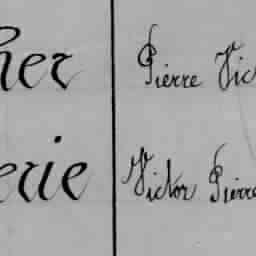 her Pierre Vic
erie Victor Pierre